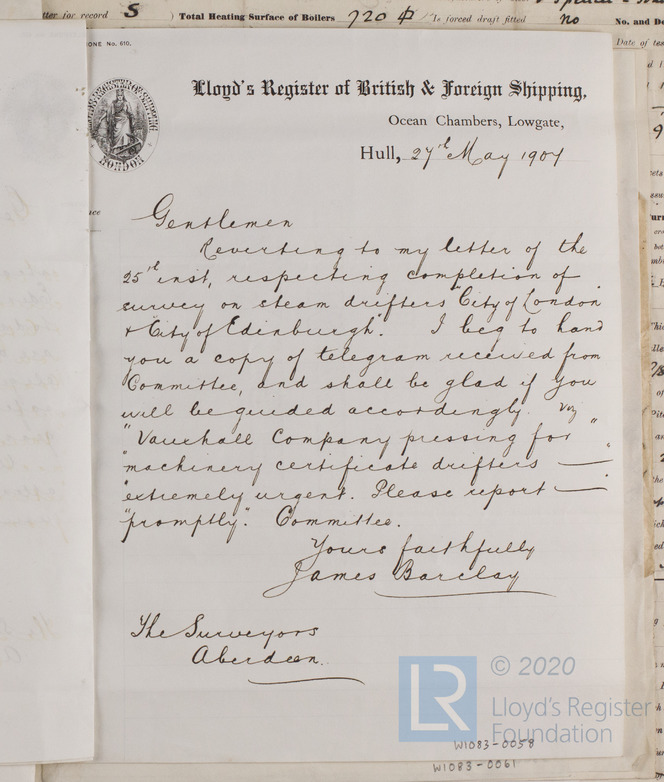 ter for record S ) Total Heating Surface of Boilers 720 ф Is forced draft fitted no No. and De
Date of tes
ONE No. 610.
LONDON
Lloyd's Register of British & Foreign Shipping,
Ocean Chambers, Lowgate,
Hull, 27th May 1907
Gentlemen
Reverting to my letter of the
25th inst, respecting completion of
survey on steam drifters "City of London
& City of Edinburgh". I beg to hand
you a copy of telegram received from
Committee, and shall be glad if you
will be guided accordingly. Viz
"Vauxhall Company pressing for "
"machinery certificate drifters — "
"extremely urgent. Please report — "
"promptly". Committee.
Yours faithfully
James Barclay
The Surveyors
Aberdeen.
LR © 2020
Lloyd's Register
Foundation
W1083-0058
W1083-0061